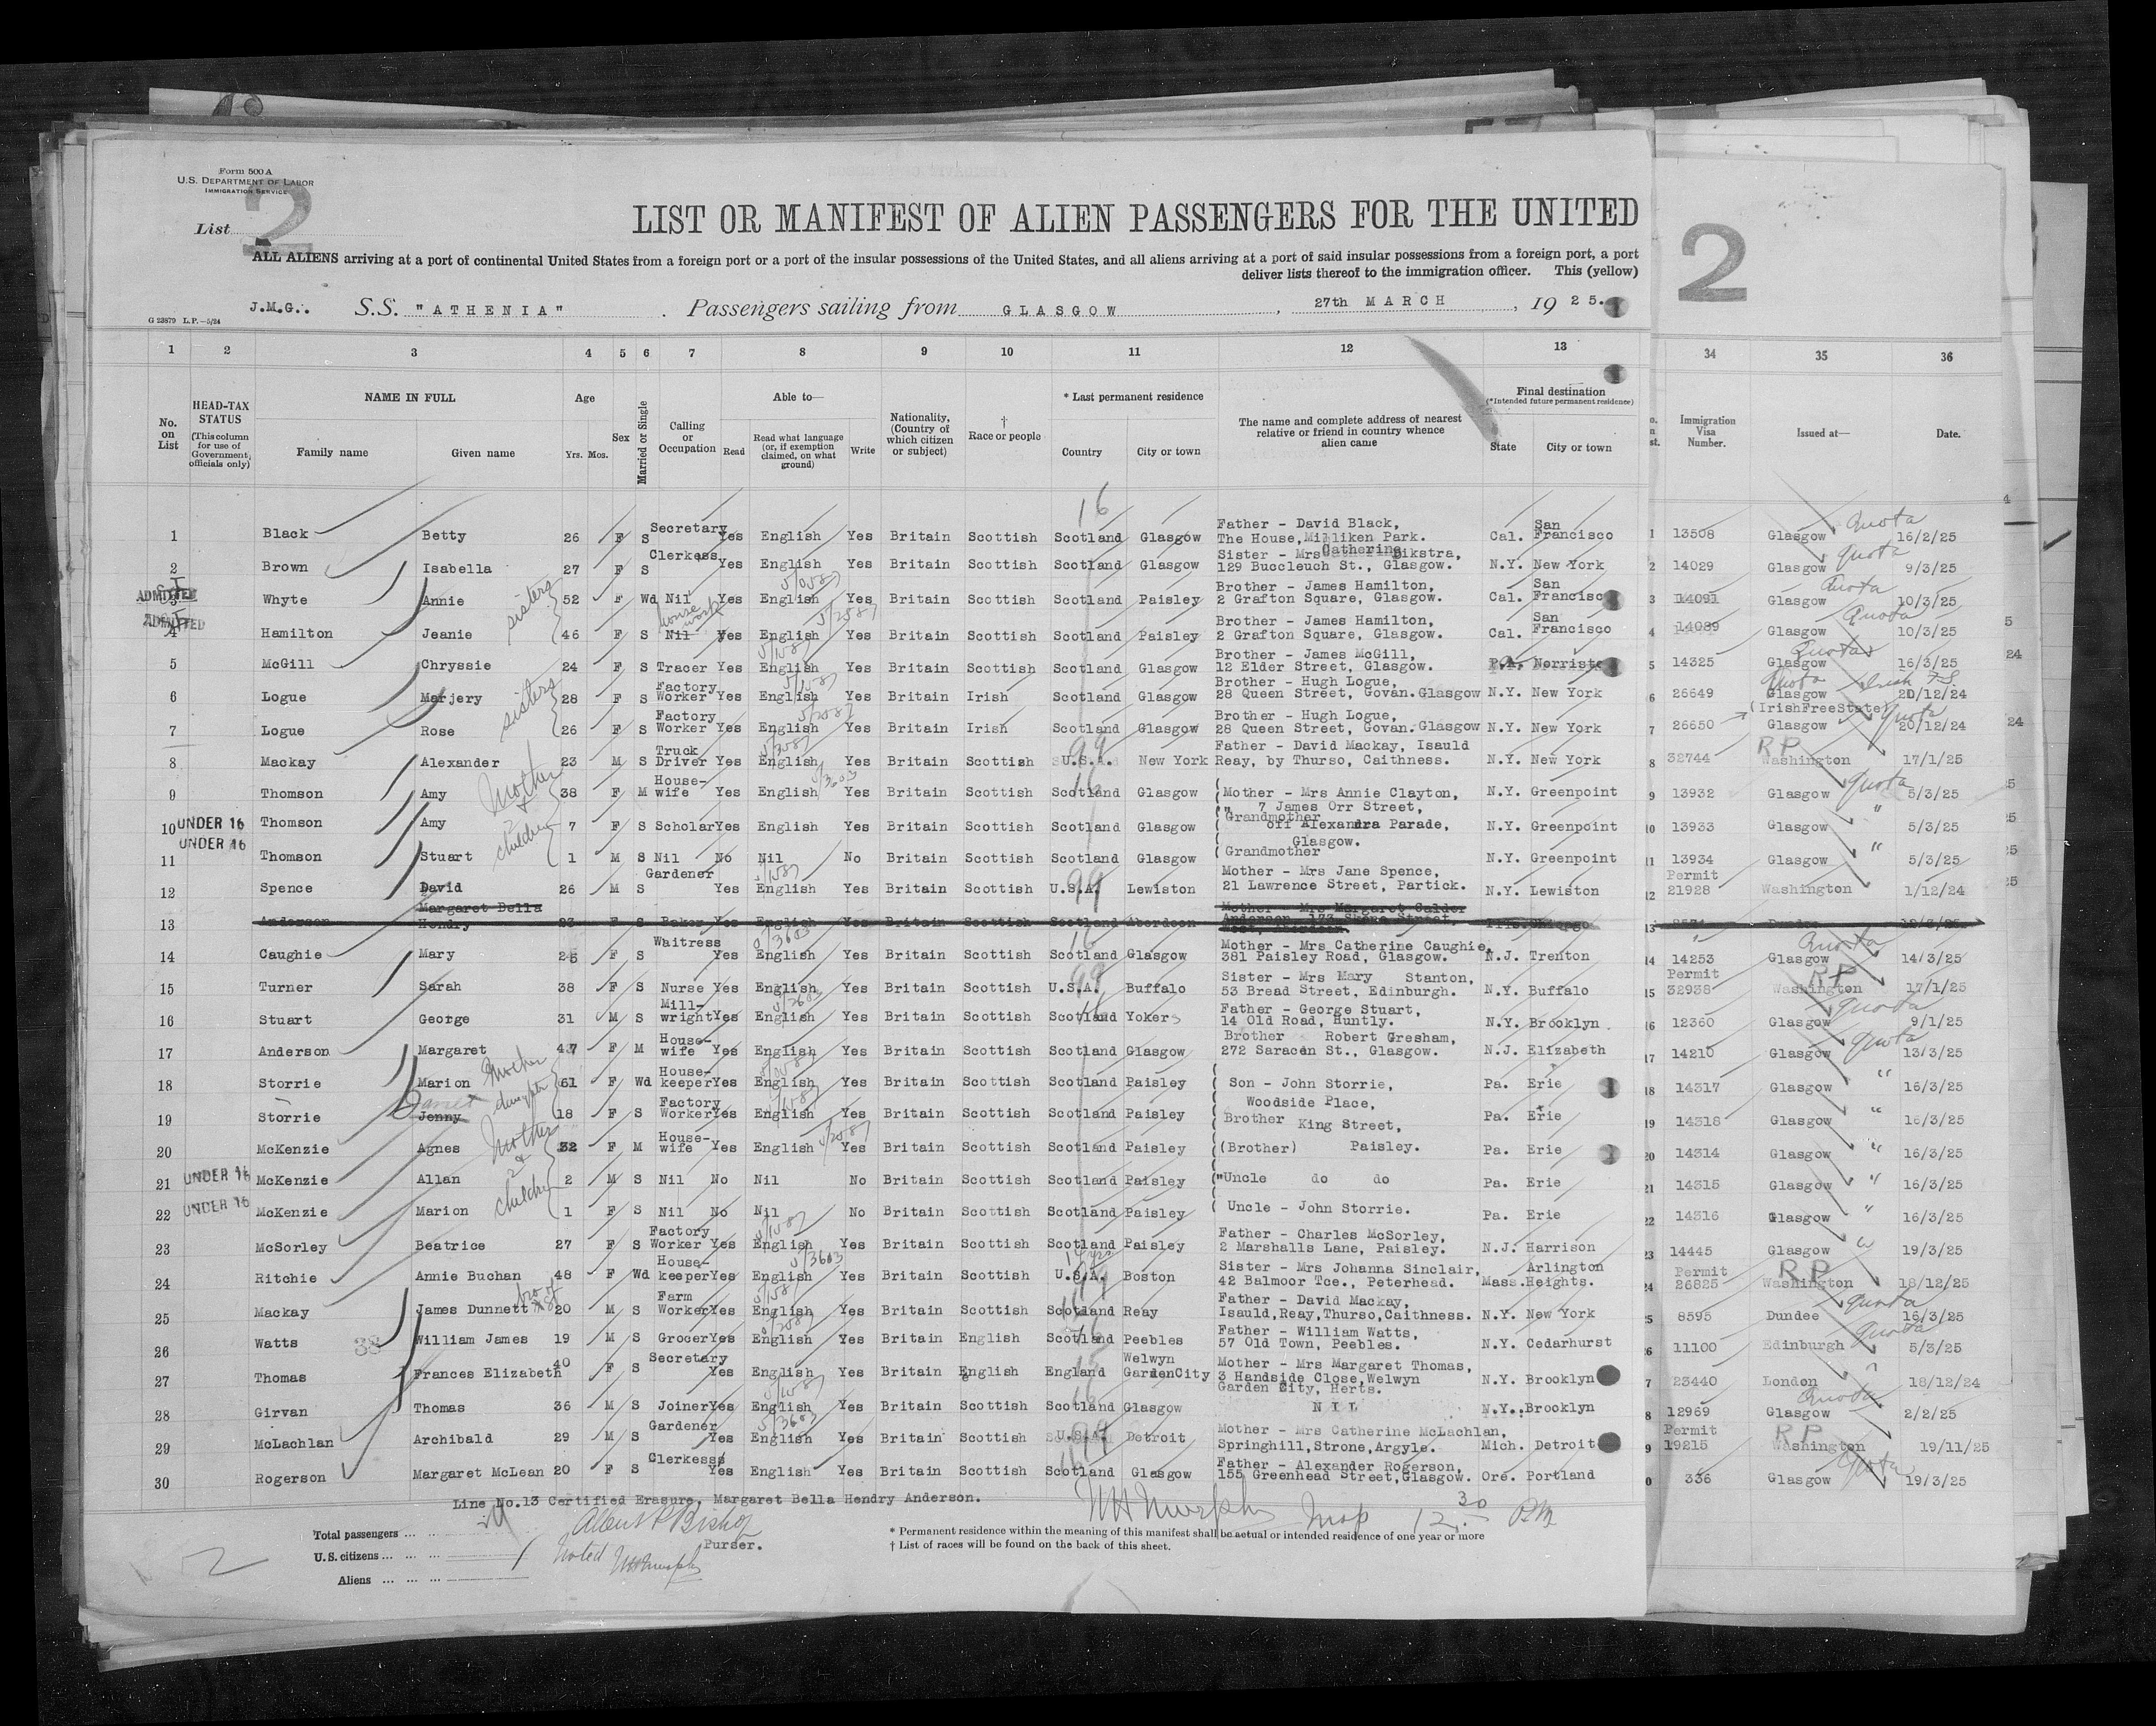 Form 500 A
U.S. DEPARTMENT OF LABOR
IMMIGRATION SERVICE
List 2
LIST OR MANIFEST OF ALIEN PASSENGERS FOR THE UNITED
2
ALL ALIENS arriving at a port of continental United States from a foreign port or a port of the insular possessions of the United States, and all aliens arriving at a port of said insular possessions from a foreign port, a port
deliver lists thereof to the immigration officer. This (yellow)
J.M.G.. S.S. "ATHENIA" . Passengers sailing from GLASGOW , 27th MARCH , 19 25.
G 23879 L.P.—5/24
1 2 3 4 5 6 7 8 9 10 11 12 13 34 35 36
No. on List
HEAD-TAX STATUS (This column for use of Government officials only)
NAME IN FULL
Family name Given name
Age
Yrs. Mos.
Sex
Married or Single
Calling or Occupation
Able to—
Read Read what language (or, if exemption claimed, on what ground) Write
Nationality, (Country of which citizen or subject)
† Race or people
* Last permanent residence
Country City or town
The name and complete address of nearest relative or friend in country whence alien came
Final destination
(*Intended future permanent residence)
State City or town
Immigration Visa Number.
Issued at—
Date.
16
1 Black Betty 26 F S Secretary Yes English Yes Britain Scottish Scotland Glasgow Father - David Black, The House, Milliken Park. Cal. San Francisco 1 13508 Glasgow Quota 16/2/25
2 Brown Isabella 27 F S Clerkess Yes English Yes Britain Scottish Scotland Glasgow Sister - Mrs Catherine Dikstra, 129 Buccleuch St., Glasgow. N.Y. New York 2 14029 Glasgow quota 9/3/25
ADMITTED 3 Whyte Annie sisters 52 F Wd Nil Yes English Yes Britain Scottish Scotland Paisley Brother - James Hamilton, 2 Grafton Square, Glasgow. Cal. San Francisco 3 14091 Glasgow Quota 10/3/25
ADMITTED 4 Hamilton Jeanie 46 F S Nil house work Yes English Yes Britain Scottish Scotland Paisley Brother - James Hamilton, 2 Grafton Square, Glasgow. Cal. San Francisco 4 14089 Glasgow Quota 10/3/25
5 McGill Chryssie 24 F S Tracer Yes English Yes Britain Scottish Scotland Glasgow Brother - James McGill, 12 Elder Street, Glasgow. P.A. 5 14325 Glasgow Quota 16/3/25
6 Logue Marjery sisters 28 F S Factory Worker Yes English Yes Britain Irish Scotland Glasgow Brother - Hugh Logue, 28 Queen Street, Govan. Glasgow N.Y. New York 6 26649 Glasgow Quota Irish F.S. 20/12/24
(IrishFreeState)
7 Logue Rose 26 F S Factory Worker Yes English Yes Britain Irish Scotland Glasgow Brother - Hugh Logue, 28 Queen Street, Govan. Glasgow N.Y. New York 7 26650 Glasgow Quota 20/12/24
8 Mackay Alexander 23 M S Truck Driver Yes English Yes Britain Scottish U.S.A. 99 New York Father - David Mackay, Isauld Reay, by Thurso, Caithness. N.Y. New York 8 32744 RP Washington 17/1/25
9 Thomson Amy Mother & 2 children 38 F M House-wife Yes English Yes Britain Scottish Scotland 16 Glasgow Mother - Mrs Annie Clayton, N.Y. Greenpoint 9 13932 Glasgow Quota 5/3/25
10 UNDER 16 Thomson Amy 7 F S Scholar Yes English Yes Britain Scottish Scotland Glasgow " 7 James Orr Street, Grandmother off Alexandra Parade, N.Y. Greenpoint 10 13933 Glasgow " 5/3/25
11 UNDER 16 Thomson Stuart 1 M S Nil No Nil No Britain Scottish Scotland Glasgow Glasgow. Grandmother N.Y. Greenpoint 11 13934 Glasgow " 5/3/25
12 Spence David 26 M S Gardener Yes English Yes Britain Scottish U.S.A. 99 Lewiston Mother - Mrs Jane Spence, 21 Lawrence Street, Partick. N.Y. Lewiston 12 Permit 21928 Washington 1/12/24
13 Anderson Margaret Bella Hendry 23 F S Baker Yes English Yes Britain Scottish Scotland Aberdeen Mother - Mrs Margaret Calder Anderson, 173 Skene Street, West, Aberdeen. Ills. Chicago 13 Dundee
14 Caughie Mary 25 F S Waitress Yes English Yes Britain Scottish Scotland 16 Glasgow Mother - Mrs Catherine Caughie, 381 Paisley Road, Glasgow. N.J. Trenton 14 14253 Glasgow Quota 14/3/25
15 Turner Sarah 38 F S Nurse Yes English Yes Britain Scottish U.S.A. 99 Buffalo Sister - Mrs Mary Stanton, 53 Bread Street, Edinburgh. N.Y. Buffalo 15 Permit 32938 RP Washington 17/1/25
16 Stuart George 31 M S Mill-wright Yes English Yes Britain Scottish Scotland 16 Yokers Father - George Stuart, 14 Old Road, Huntly. N.Y. Brooklyn 16 12360 Glasgow quota 9/1/25
17 Anderson Margaret 47 F M House-wife Yes English Yes Britain Scottish Scotland Glasgow Brother Robert Gresham, 272 Saracen St., Glasgow. N.J. Elizabeth 17 14210 Glasgow Quota 13/3/25
18 Storrie Marion Mother daughter 61 F Wd House-keeper Yes English Yes Britain Scottish Scotland Paisley Son - John Storrie, Pa. Erie 18 14317 Glasgow " 16/3/25
19 Storrie Jenny Janet 18 F S Factory Worker Yes English Yes Britain Scottish Scotland Paisley Woodside Place, Brother King Street, Pa. Erie 19 14318 Glasgow " 16/3/25
20 McKenzie Agnes Mother & 2 children 32 F M House-wife Yes English Yes Britain Scottish Scotland Paisley (Brother) Paisley. Pa. Erie 20 14314 Glasgow " 16/3/25
21 UNDER 16 McKenzie Allan 2 M S Nil No Nil No Britain Scottish Scotland Paisley "Uncle do do Pa. Erie 21 14315 Glasgow " 16/3/25
22 UNDER 16 McKenzie Marion 1 F S Nil No Nil No Britain Scottish Scotland Paisley Uncle - John Storrie. Pa. Erie 22 14316 Glasgow " 16/3/25
23 McSorley Beatrice 27 F S Factory Worker Yes English Yes Britain Scottish Scotland Paisley Father - Charles McSorley, 2 Marshalls Lane, Paisley. N.J. Harrison 23 14445 Glasgow " 19/3/25
24 Ritchie Annie Buchan 48 F Wd House-keeper Yes English Yes Britain Scottish U.S.A. 99 Boston Sister - Mrs Johanna Sinclair, 42 Balmoor Tce., Peterhead. Mass. Arlington Heights. 24 Permit 26825 RP Washington 18/12/25
25 Mackay James Dunnett 20 M S Farm Worker Yes English Yes Britain Scottish Scotland Reay Father - David Mackay, Isauld, Reay, Thurso, Caithness. N.Y. New York 25 8595 Dundee quota 16/3/25
26 Watts 38 William James 19 M S Grocer Yes English Yes Britain English Scotland 16 Peebles Father - William Watts, 57 Old Town, Peebles. N.Y. Cedarhurst 26 11100 Edinburgh Quota 5/3/25
27 Thomas Frances Elizabeth 40 F S Secretary Yes English Yes Britain English England 15 Welwyn GardenCity Mother - Mrs Margaret Thomas, 3 Handside Close, Welwyn Garden City, Herts. N.Y. Brooklyn 7 23440 London " 18/12/24
28 Girvan Thomas 36 M S Joiner Yes English Yes Britain Scottish Scotland 16 Glasgow NIL N.Y. Brooklyn 8 12969 Glasgow Quota 2/2/25
29 McLachlan Archibald 29 M S Gardener Yes English Yes Britain Scottish U.S.A. 99 Detroit Mother - Mrs Catherine McLachlan, Springhill, Strone, Argyle. Mich. Detroit 9 Permit 19215 RP Washington 19/11/25
30 Rogerson Margaret McLean 20 F S Clerkess Yes English Yes Britain Scottish Scotland 16 Glasgow Father - Alexander Rogerson, 155 Greenhead Street, Glasgow. Ore. Portland 0 336 Glasgow Quota 19/3/25
Line No.13 Certified Erasure, Margaret Bella Hendry Anderson.
Albert R Bishop
Purser.
Noted WHMurphy
WHMurphy Insp 12.30 PM
Total passengers ... ...
U.S. citizens ... ... ...
Aliens ... ... ...
2
* Permanent residence within the meaning of this manifest shall be actual or intended residence of one year or more
† List of races will be found on the back of this sheet.